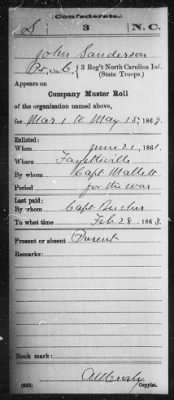 Confederate.
S 3 N.C.
John Sanderson
Pvt, Co. C, 3 Reg't North Carolina Inf.
(State Troops.)
Appears on
Company Muster Roll
of the organization named above,
for Mar 1 to May 15, 1863.
Enlisted:
When June 21, 1861.
Where Fayetteville
By whom Capt Mallett
Period for the war
Last paid:
By whom Capt
To what time Feb 28, 1863.
Present or absent Present
Remarks:
Book mark:
Copyist.